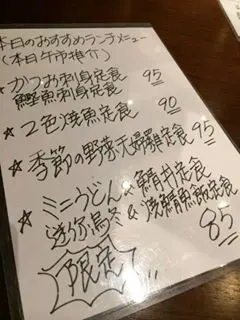 本日のおすすめランチメニュー
(本日午市推介)
☆かつお刺身定食 95
鰹魚刺身定食
☆2色焼魚定食 90
☆季節の野菜天婦羅定食 95
☆ミニうどん&鯖丼定食
迷你烏冬&燒鯖魚飯定食
限定 85